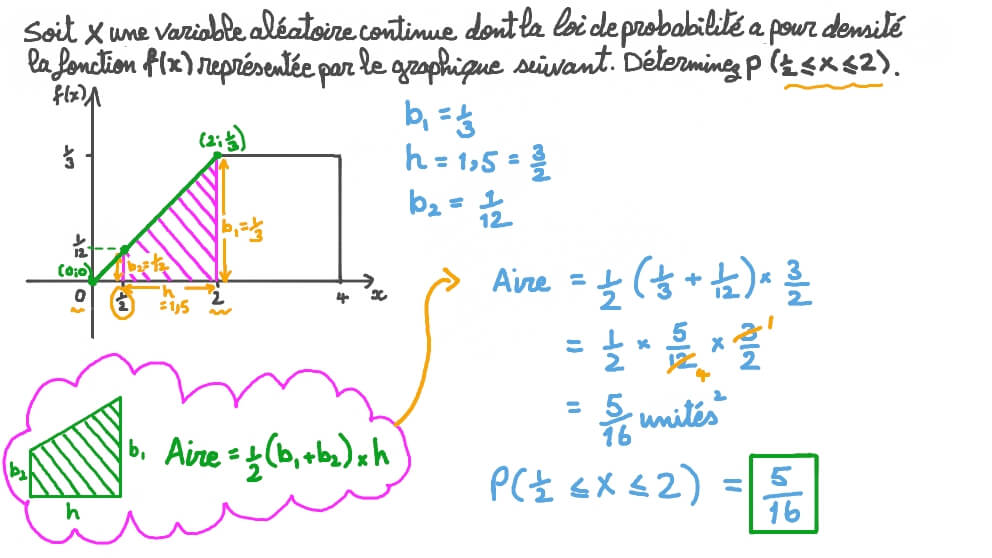 Soit X une variable aléatoire continue dont la loi de probabilité a pour densité
la fonction f(x) représentée par le graphique suivant. Déterminez P (1/2 ≤ X ≤ 2).
f(x)
(2; 1/3)
1/3
b₁ = 1/3
1/12
b₂ = 1/12
(0;0)
0
1/2
h = 1,5
2
4
x
b₁ = 1/3
h = 1,5 = 3/2
b₂ = 1/12
Aire = 1/2 (1/3 + 1/12) × 3/2
= 1/2 × 5/12 × 3/2
4
1
= 5/16 unités²
P(1/2 ≤ X ≤ 2) = 5/16
b₂
b₁
h
Aire = 1/2 (b₁ + b₂) × h